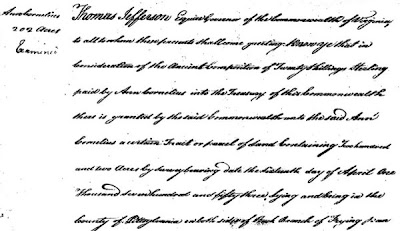 Ann Cornelius
202 Acres
Examined
Thomas Jefferson Esquire Governor of the Commonwealth of Virginia
to all to whom these presents shall come greeting. Know ye that in
Consideration of the Ancient Composition of Twenty Shillings Sterling
paid by Ann Cornelius into the Treasury of this Commonwealth
there is granted by the said Commonwealth unto the said Ann
Cornelius a certain Tract or parcel of Land Containing Two hundred
and two Acres by survey bearing date the sixteenth day of April One
Thousand seven hundred and fifty three, lying and being in the
County of Pittsylvania on both sides of Fork Branch of Frying pan